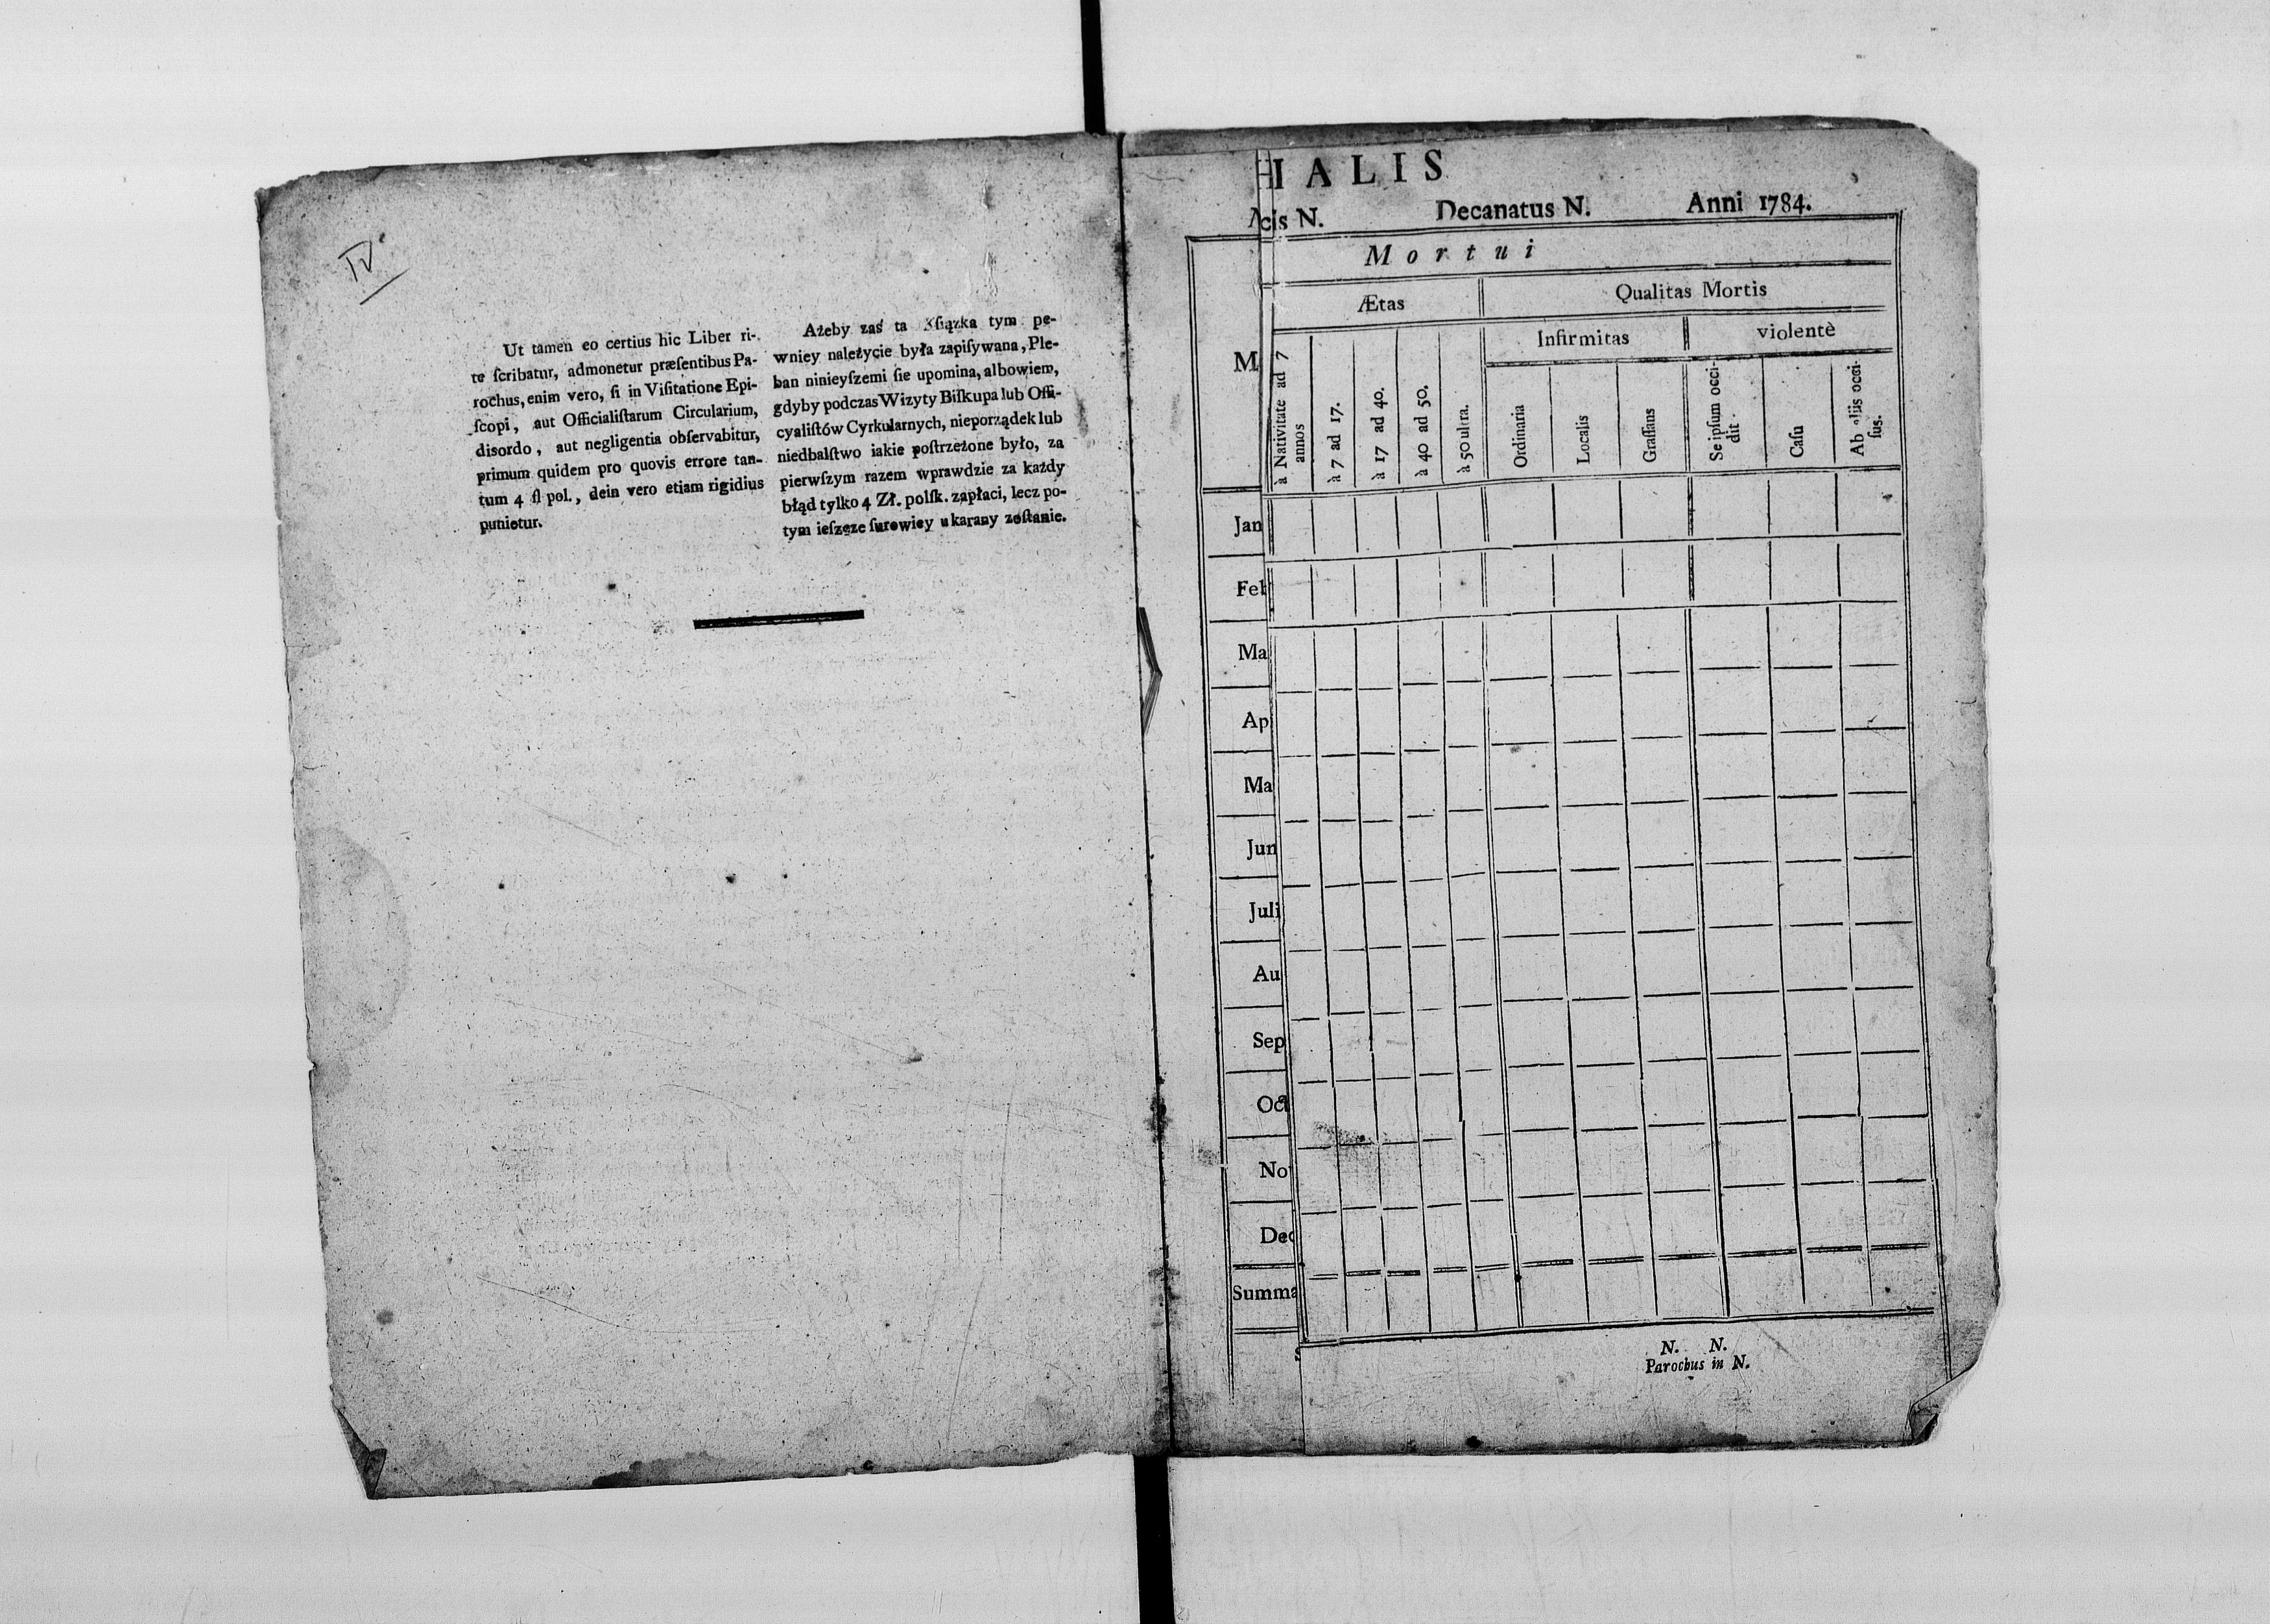 IV
Ut tamen eo certius hic Liber ri-
te ſcribatur, admonetur præſentibus Pa-
rochus, enim vero, ſi in Viſitatione Epi-
ſcopi, aut Officialiſtarum Circularium,
disordo, aut negligentia obſervabitur,
primum quidem pro quovis errore tan-
tum 4 fl pol., dein vero etiam rigidius
punietur.
Ażeby zaś ta Xſiązka tym pe-
wniey należycie była zapiſywana, Ple-
ban ninieyſzemi ſie upomina, albowiem,
gdyby podczas Wizyty Biſkupa lub Offi-
cyaliſtów Cyrkularnych, nieporządek lub
niedbalſtwo iakie poſtrzeżone było, za
pierwſzym razem wprawdzie za każdy
błąd tylko 4 Zł. polſk. zapłaci, lecz po-
tym ieſzcze ſurowiey ukarany zoſtanie.
IALIS
cis N. Decanatus N. Anni 1784.
Mortui
Ætas
Qualitas Mortis
Infirmitas
violentè
M
à Nativitate ad 7
annos
à 7 ad 17.
à 17 ad 40.
à 40 ad 50.
à 50 ultra.
Ordinaria
Localis
Graſſans
Se ipſum occi-
dit
Caſu
Ab aliis occi-
ſus.
Jan
Feb
Ma
Ap
Ma
Jun
Juli
Au
Sep
Oct
No
Dec
Summa
N. N.
Parochus in N.